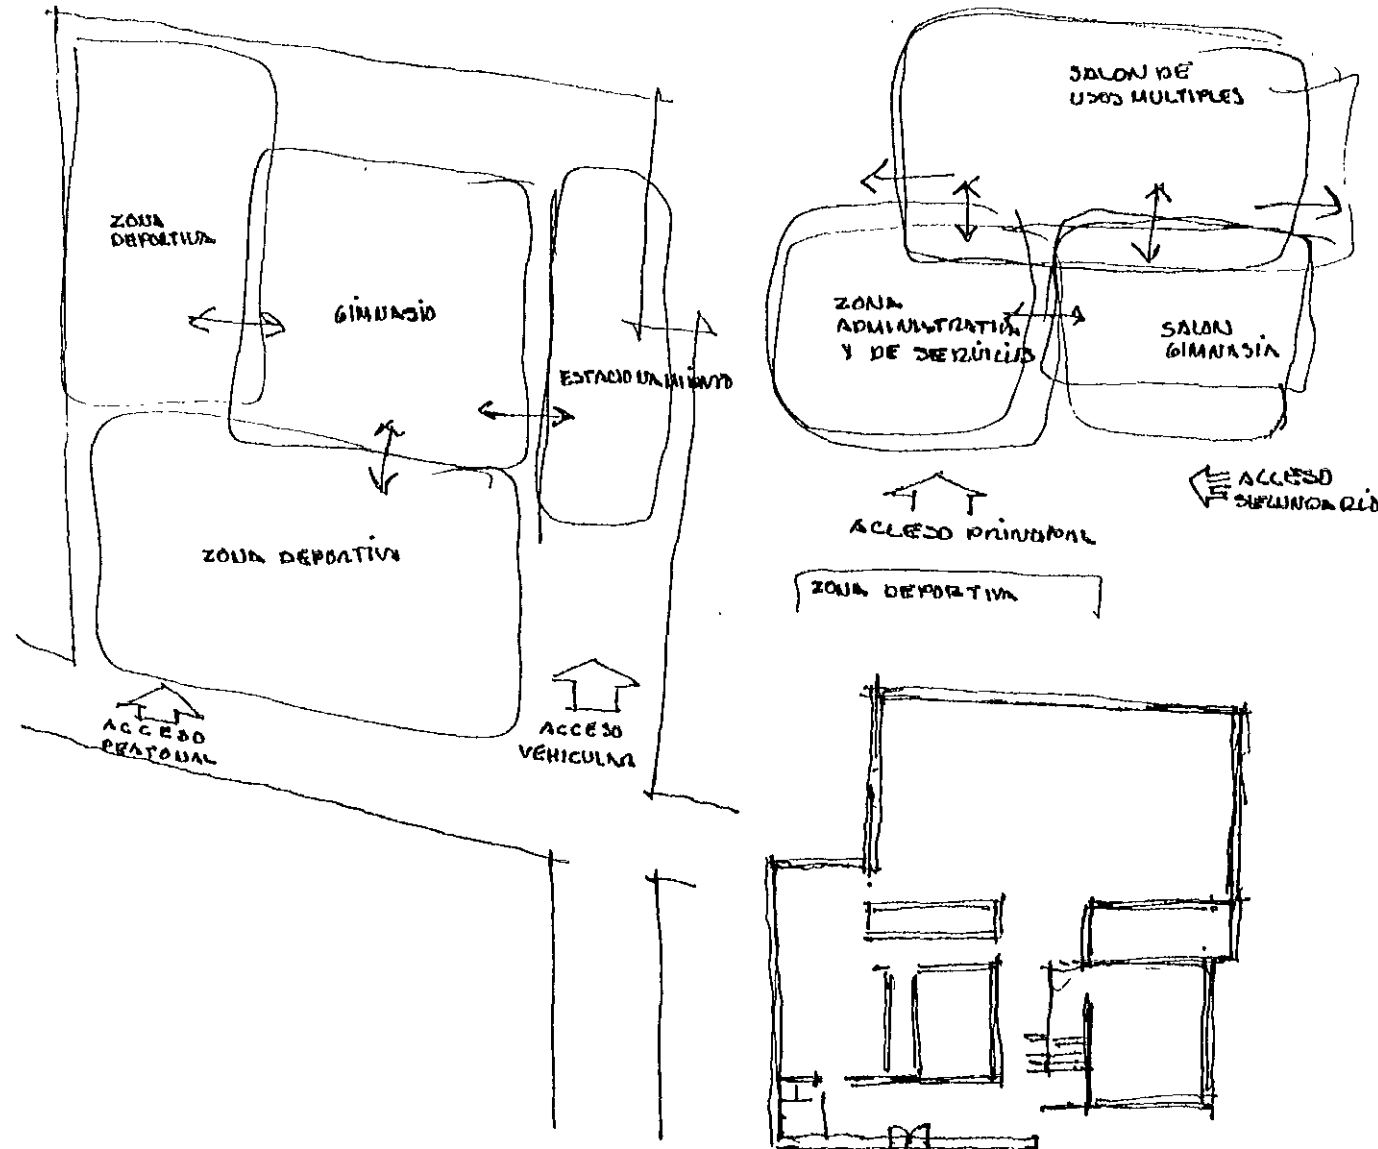 ZONA
DEPORTIVA
GIMNASIO
ESTACIONAMIENTO
ZONA DEPORTIVA
ACCESO
PEATONAL
ACCESO
VEHICULAR
SALON DE
USOS MULTIPLES
ZONA
ADMINISTRATIVA
Y DE SERVICIOS
SALON
GIMNASIA
ACCESO
SECUNDARIO
ACCESO PRINCIPAL
ZONA DEPORTIVA